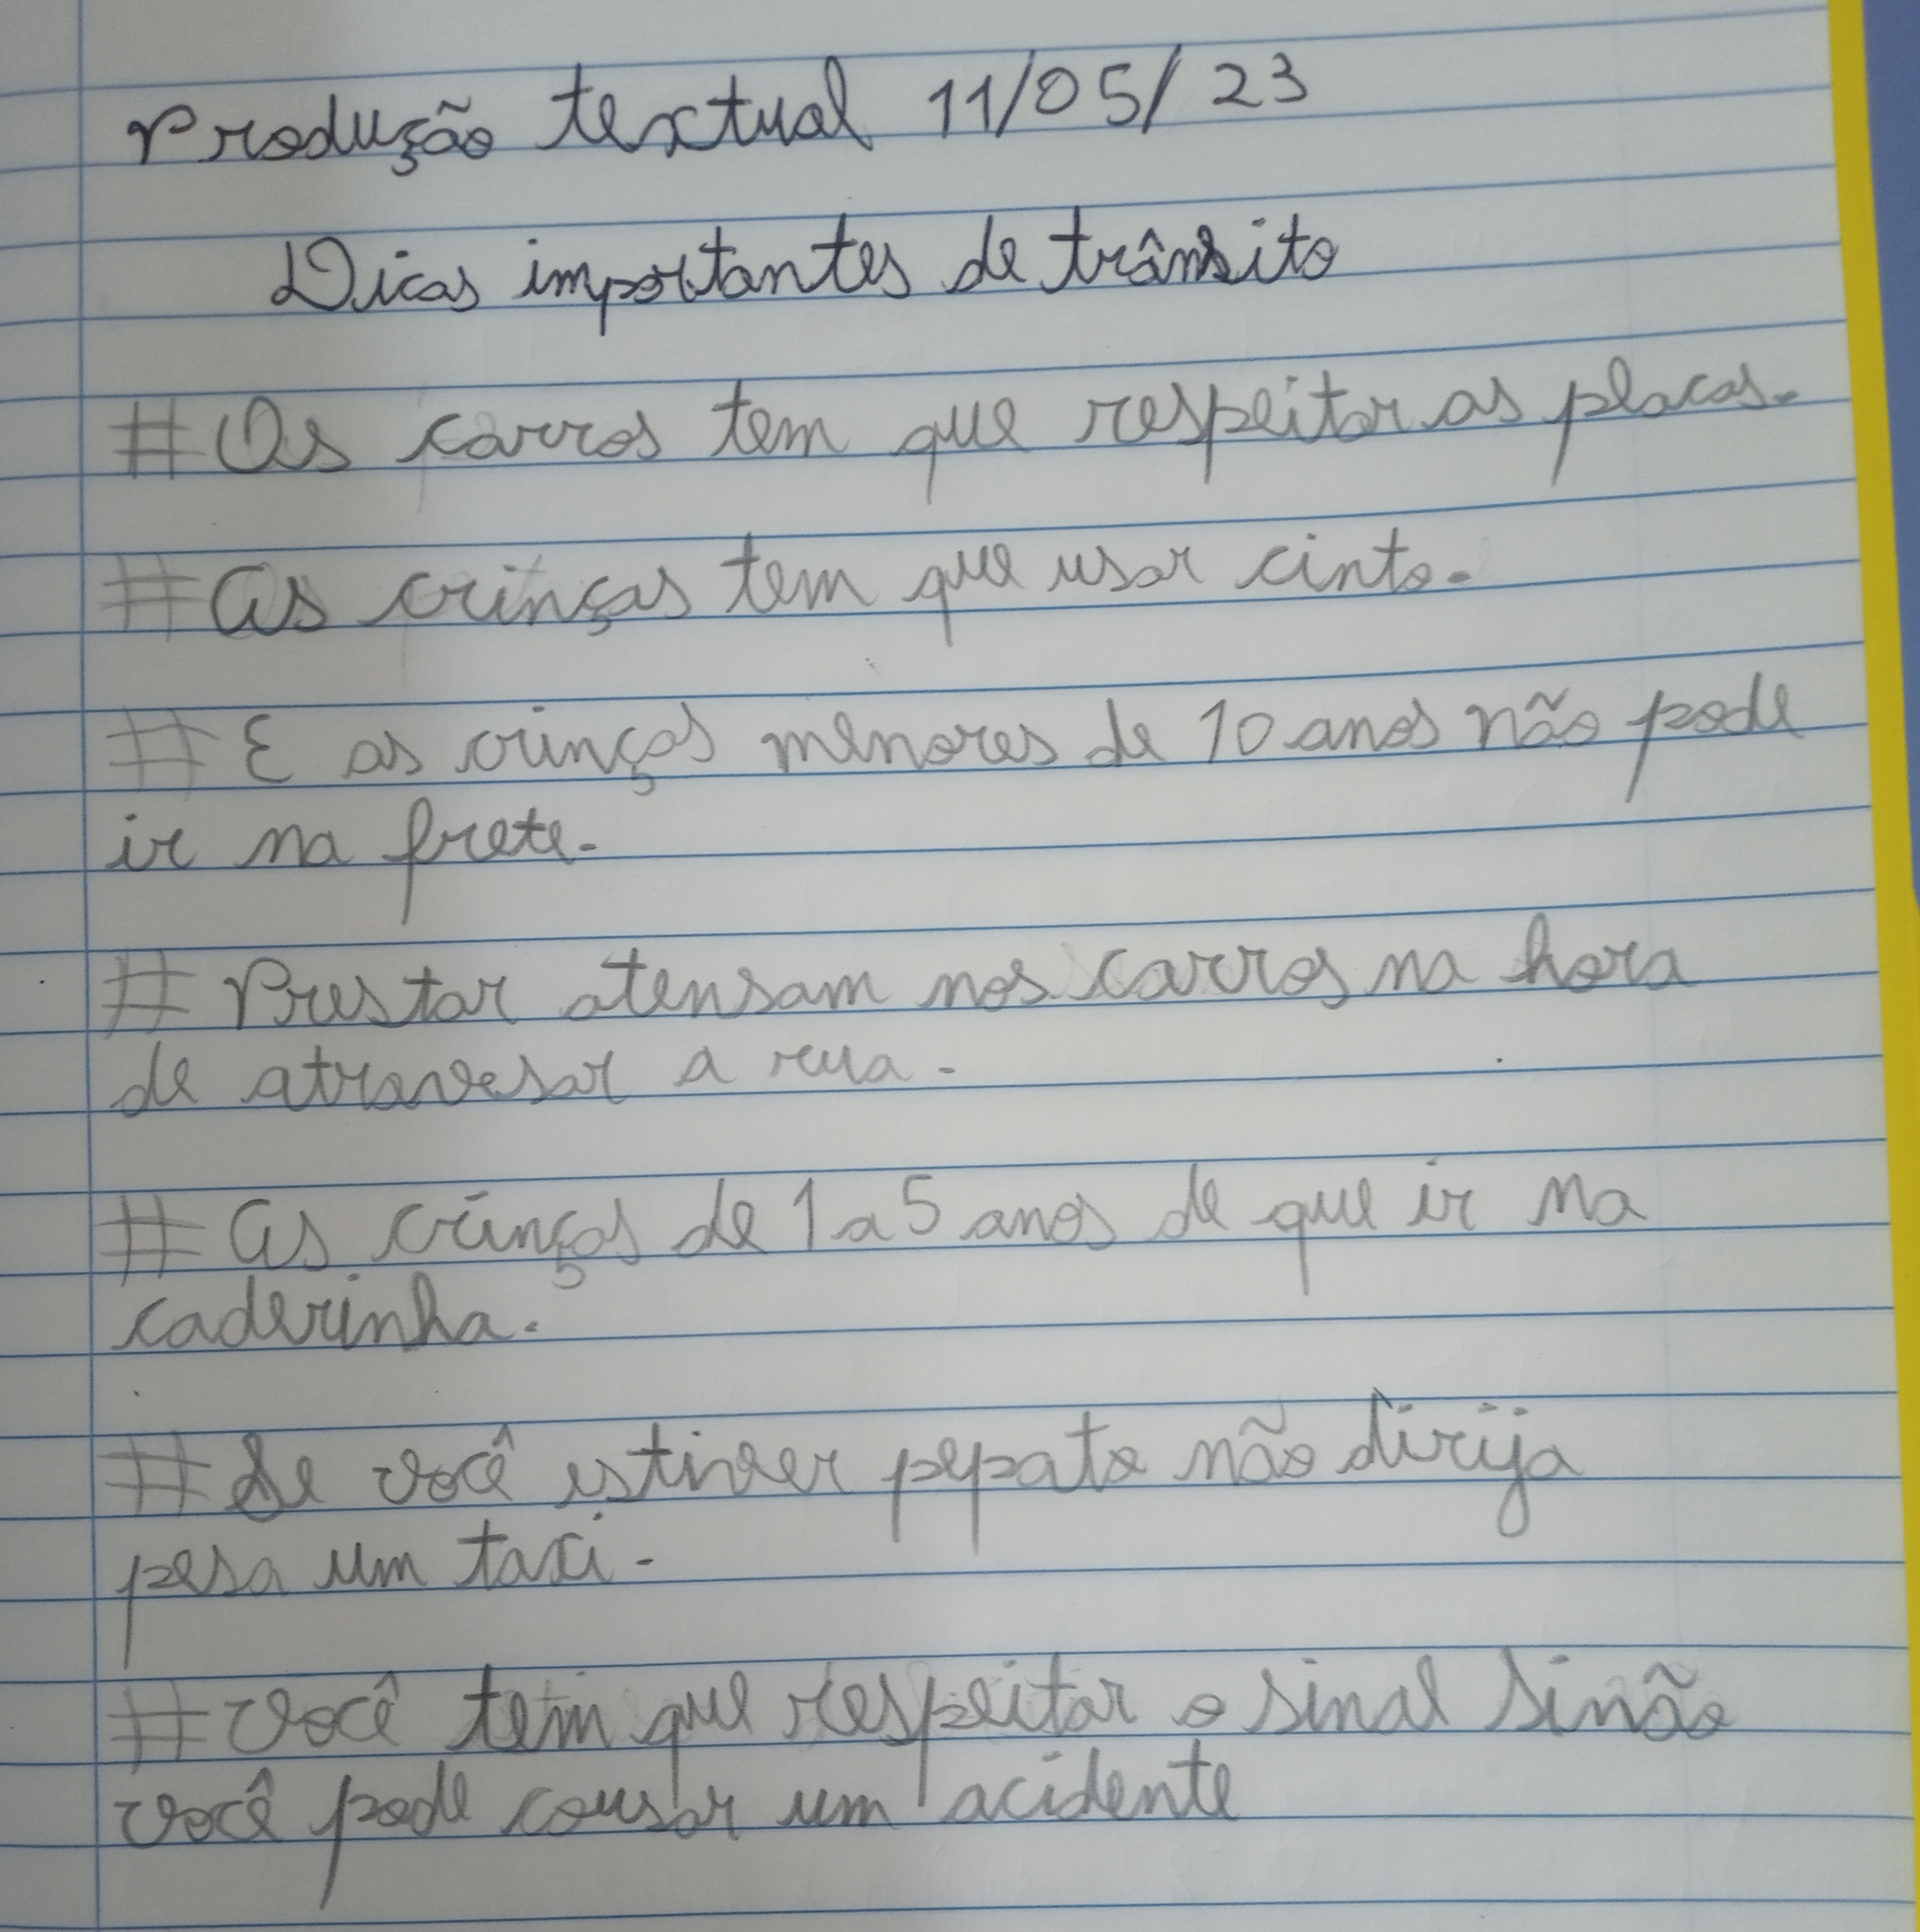 Produção textual 11/05/23
Dicas importantes de trânsito
# Os carros tem que respeitar as placas.
# As crinças tem que usar cinto.
# E as crinças menores de 10 anos não pode
ir na frete.
# Prestar atensam nos carros na hora
de atravesar a rua.
# As crinças de 1 a 5 anos de que ir na
caderinha.
# Se você estiver pepato não dirija
pesa um taxi.
# Você tem que respeitar o sinal sinão
você pode cousar um acidente